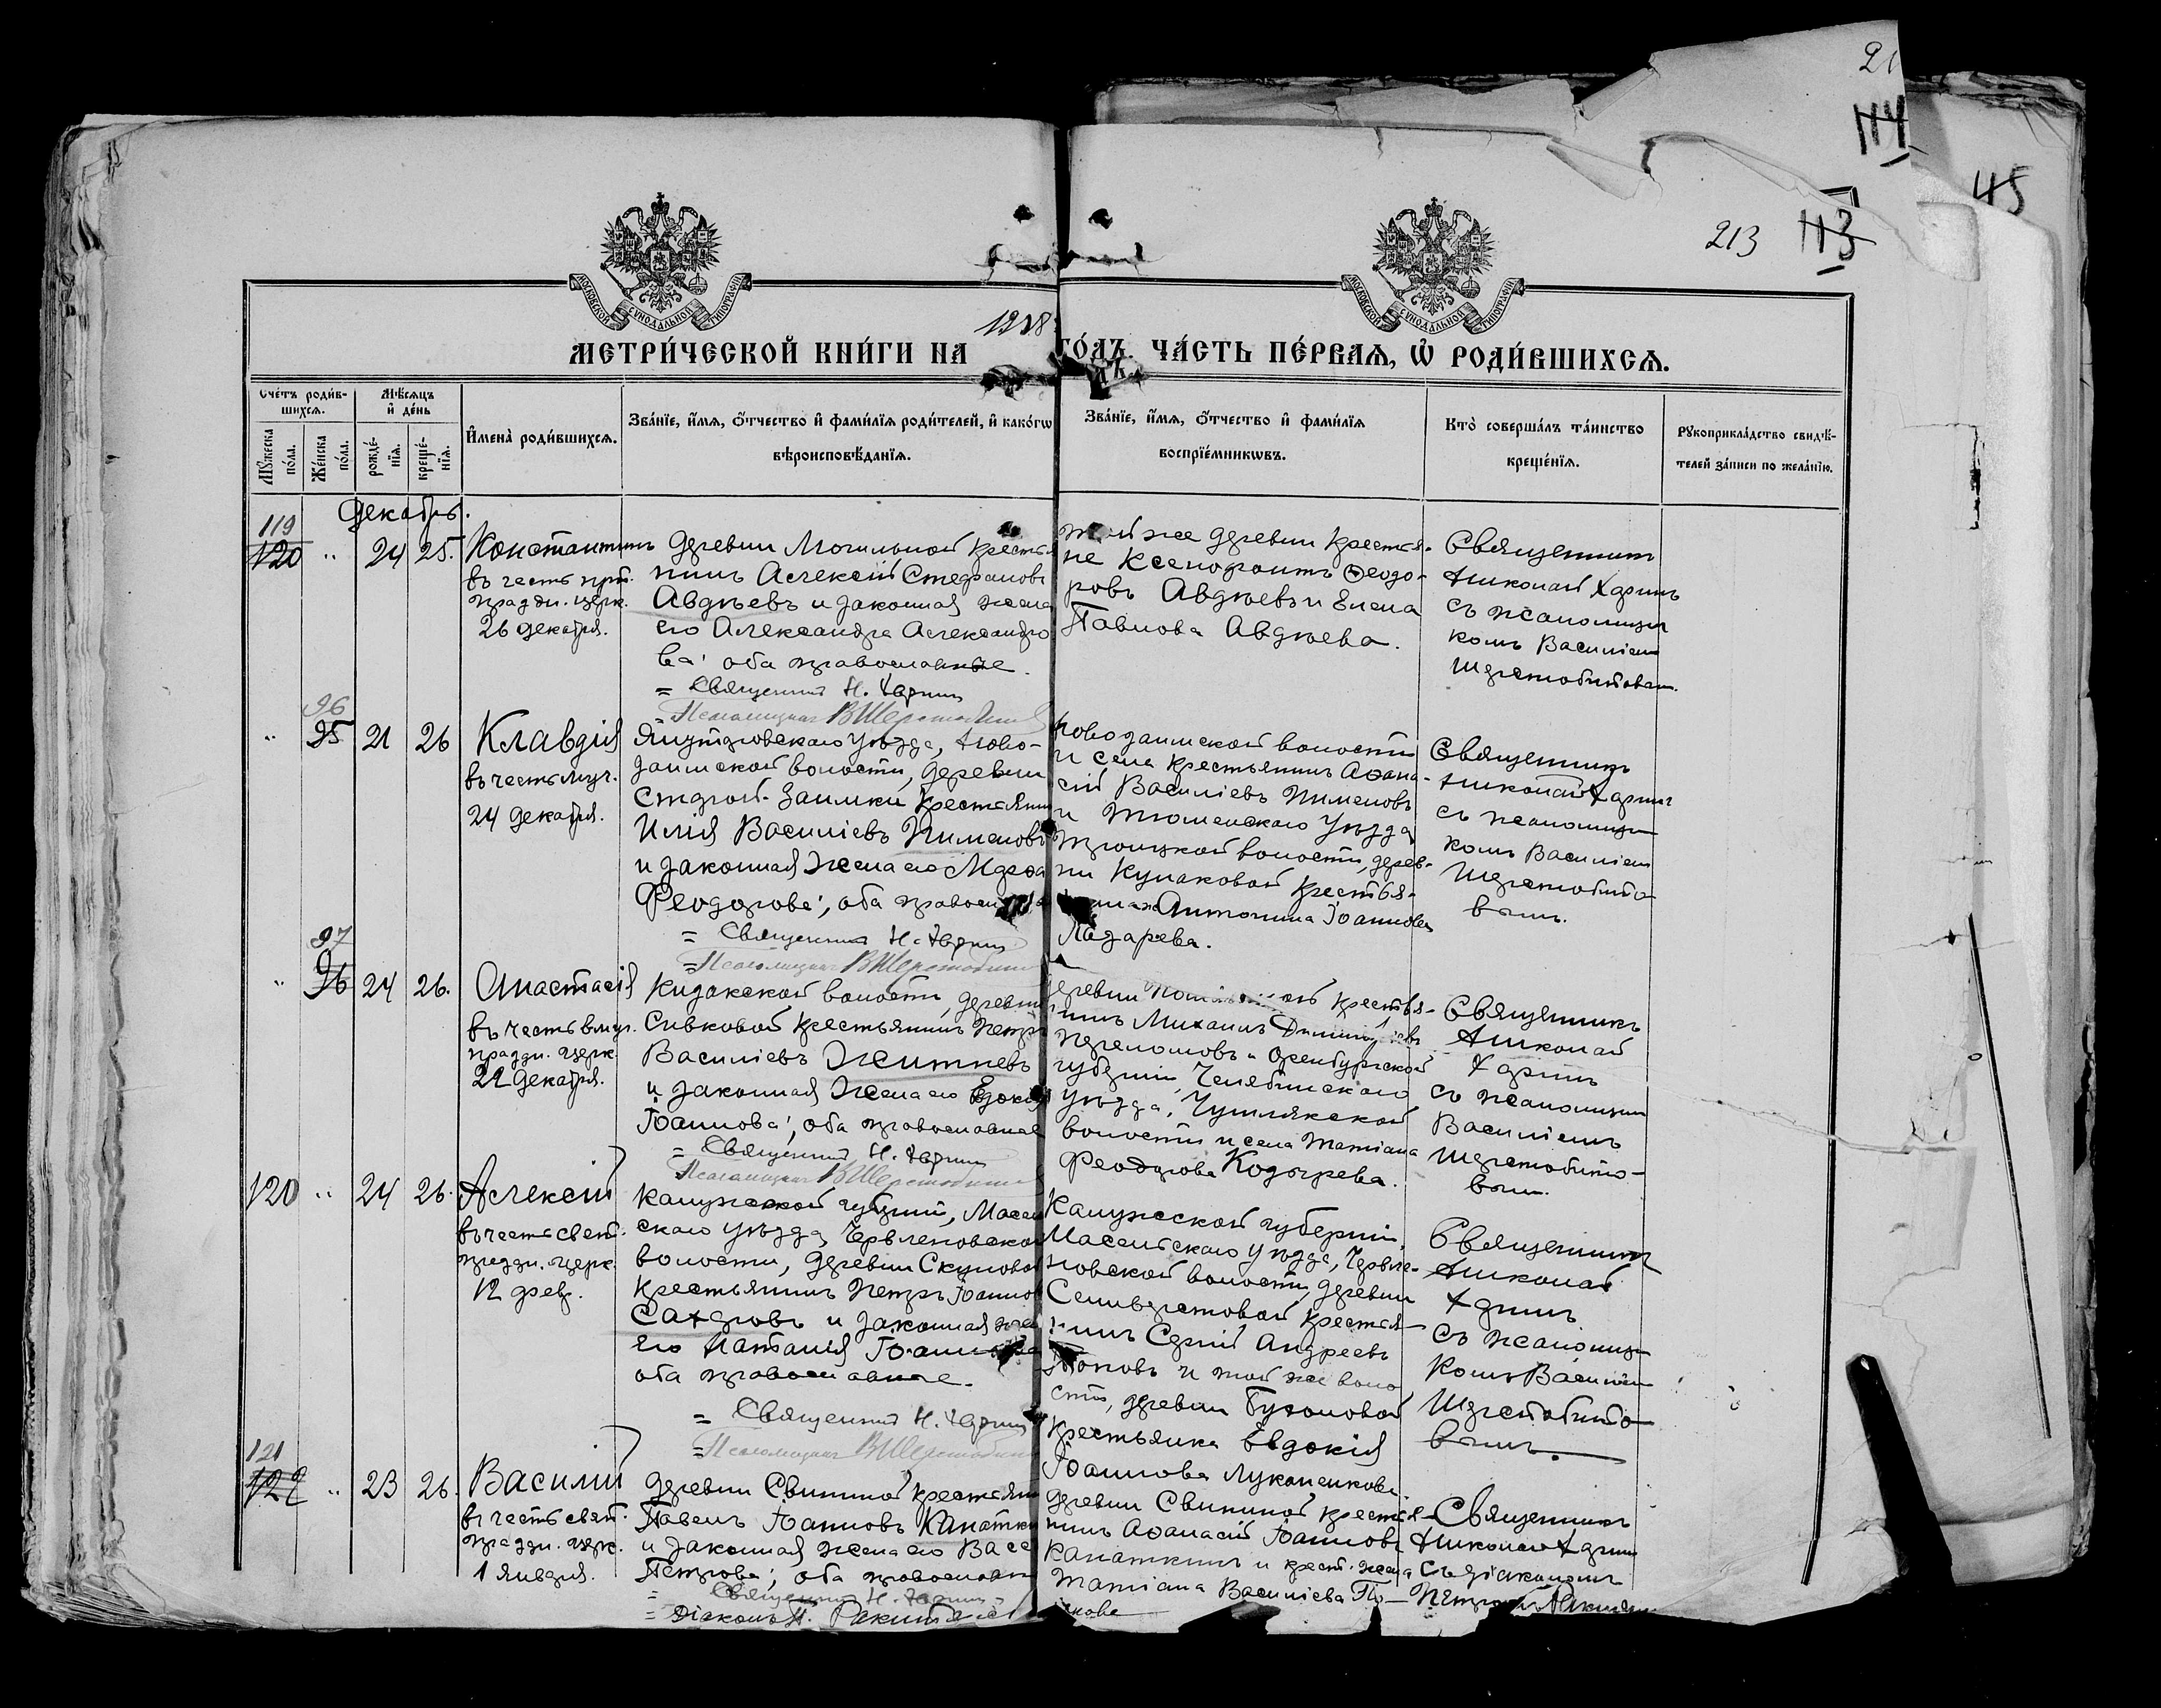 21
114
45
213 113
МОСКОВСКОЙ СУНОДАЛЬНОЙ ТИПОГРАФІИ
МОСКОВСКОЙ СУНОДАЛЬНОЙ ТИПОГРАФІИ
МЕТРИ́ЧЕСКОЙ КНИ́ГИ НА 1918 ГО́ДЪ. ЧА́СТЬ ПЕ́РВАѦ, Ѿ РОДИ́ВШИХСѦ.
Сче́тъ роди́в-
шихсѧ.
Мꙋ́жеска по́ла.
Же́нска по́ла.
Мѣ́сѧцъ и҆ де́нь
рожде́-
нїѧ.
креще́-
нїѧ.
И҆мена̀ роди́вшихсѧ.
Зва́нїе, и҆́мѧ, ѻ҆́тчество и҆ фами́лїѧ роди́телей, и҆ како́гѡ
вѣроисповѣ́данїѧ.
Зва́нїе, и҆́мѧ, ѻ҆́тчество и҆ фами́лїѧ
воспрїе́мникѡвъ.
Кто̀ соверша́лъ та́инство
креще́нїѧ.
Рꙋкоприкла́дство свидѣ́-
телей за́писи по жела́нїю.
Декабрь.
119
120 " 24 25. Константинъ
въ честь
праздн. церк.
26 декабря.
Деревни Могильной крестья
нинъ Алексій Стефановъ
Авдѣевъ и законная жена
его Александра Александро
ва; оба православные.
= Священникъ Н.
= Псаломщикъ В Шерстобитовъ
той же деревни крестья-
не Ксенофонтъ Ѳеодо-
ровъ Авдѣевъ и Елена
Павлова Авдѣева.
Священникъ
Николай
съ псаломщи
комъ Василіем
Шерстобитовым.
96
" 95 21 26 Клавдія
въ честь муч.
24 декабря.
Ялуторовскаго уѣзда, Ново-
заимской волости, деревни
Старой-Заимки крестьянин
Илія Василіевъ Пименовъ
и законная жена его Марѳа
Феодорова; оба правосл
= Священникъ Н.
= Псаломщикъ В Шерстобитов
Новозаимской волости
и села крестьянинъ Аѳана-
сій Василіевъ Пименовъ
и Тюменскаго уѣзда
Троицкой волости, дерев-
ни Кулаковой крестья-
Антонина Іоаннова
Лазарева.
Священникъ
Николай
съ псаломщи
комъ Василіем
Шерстобито-
вым.
97
" 96 24 26. Анастасія
въ честь вмуч.
праздн. церк.
22 декабря.
Кизакской волости, деревни
Сивковой крестьянинъ Петръ
Василіевъ Житневъ
и законная жена его Евдокія
Іоаннова; оба православные
= Священникъ Н.
Псаломщикъ В Шерстобитов
деревни крестья-
нинъ Михаилъ
и Оренбургской
губерніи, Челябинскаго
уѣзда, Чумлякской
волости и села Татіана
Феодорова Козырева.
Священникъ
Николай
съ псаломщиком
Василіемъ
Шерстобито-
вым.
120 " 24 26. Алексій
въ честь свят.
праздн. церк.
12 февр.
Калужской губерніи, Масаль
скаго уѣзда, Червленовской
волости, деревни Скуловой
крестьянинъ Петръ Іоаннов
Сахаровъ и законная жена
его Наталія Іоаннова
оба православные.
= Священникъ Н.
= Псаломщикъ В Шерстобитов
Калужской губерніи,
Масальскаго уѣзда, Червле-
новской волости, деревни
Селиверстовой крестья-
нинъ Сергій Андреевъ
и той же воло
сти, деревни
крестьянка Евдокія
Іоаннова Луканенкова
Священникъ
Николай
съ псаломщи
комъ Василіем
Шерстобито-
вымъ.
121
122 " 23 26. Василій
въ честь свят.
праздн. церк.
1 января.
Деревни Свининой крестьянин
Павелъ Іоанновъ Канаткин
и законная жена его Васс
Петрова; оба православн
= Священникъ Н.
= Діаконъ П.
деревни Свининой крестья-
нинъ Аѳанасій Іоанновъ
Канаткинъ и крест. жена
Татіана Василіева
Священникъ
Николай
съ діакономъ
Петромъ